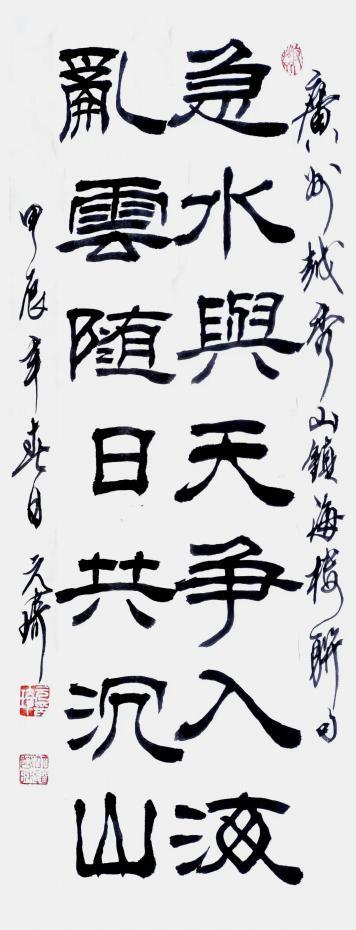 廣州越秀山鎮海樓聯句
急水與天争入海
亂雲随日共沉山
甲辰年春日元琦